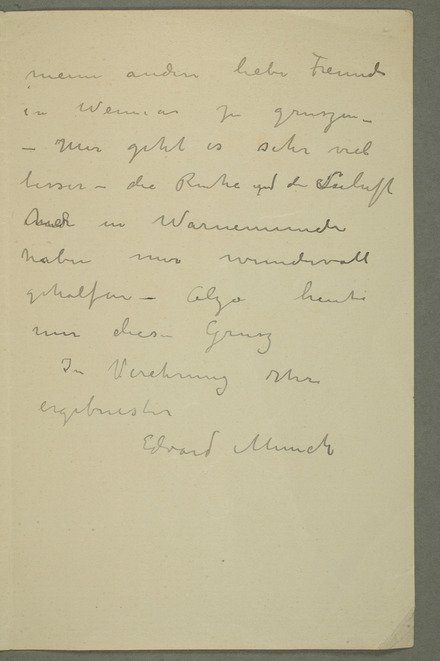 meine anderen liebe Freunde
in Weimar zu gruszen –
– Mir geht es sehr viel
besser – die Ruhe und die Seeluft
in Warnemünde
haben mir wundervoll
geholfen – Also heute
nur diesen Grusz
In Verehrung Ihr
ergebenster
Edvard Munch